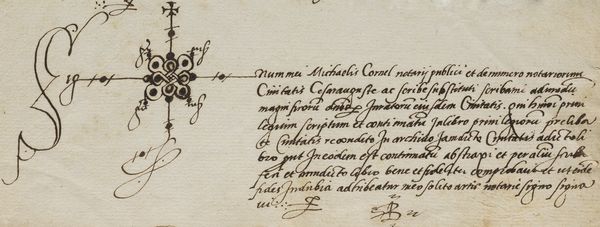 Sig num mei Michaelis Cornel notarij publici et de numero notariorum
Civitatis Cesarauguste ac scribe substituti scribanie admodu
magnificorū dnōȝ Juratorū eiusdem Civitatis. qui hmōi privi
legium scriptum et continuatū in libro privilegiorū prelibate
Civitatis recondito In archivo Jamdicte Civitatis a dicto li
bro put In eodem est continuatū abstraxi et per aliū scribi
feci et cum dicto libro bene et fideliter comprobavi et ut eide
fides Indubia adhibeatur meo solito artis notarie signo signa
vi